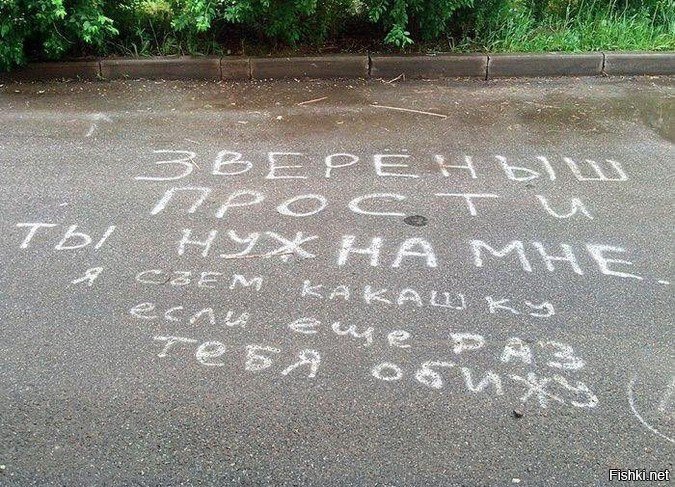 ЗВЕРЁНЫШ
ПРОСТИ
ТЫ НУЖНА МНЕ.
я съем какашку
если еще раз
тебя обижу
Fishki.net